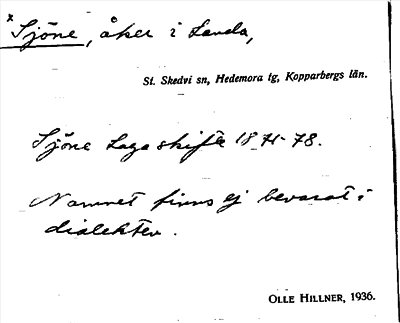 x Sjöne, åker i Landa,
St. Skedvi sn, Hedemora tg, Kopparbergs län.
Sjöne Laga skifte 1871-78.
Namnet finns ej bevarat i
dialekten.
OLLE HILLNER, 1936.